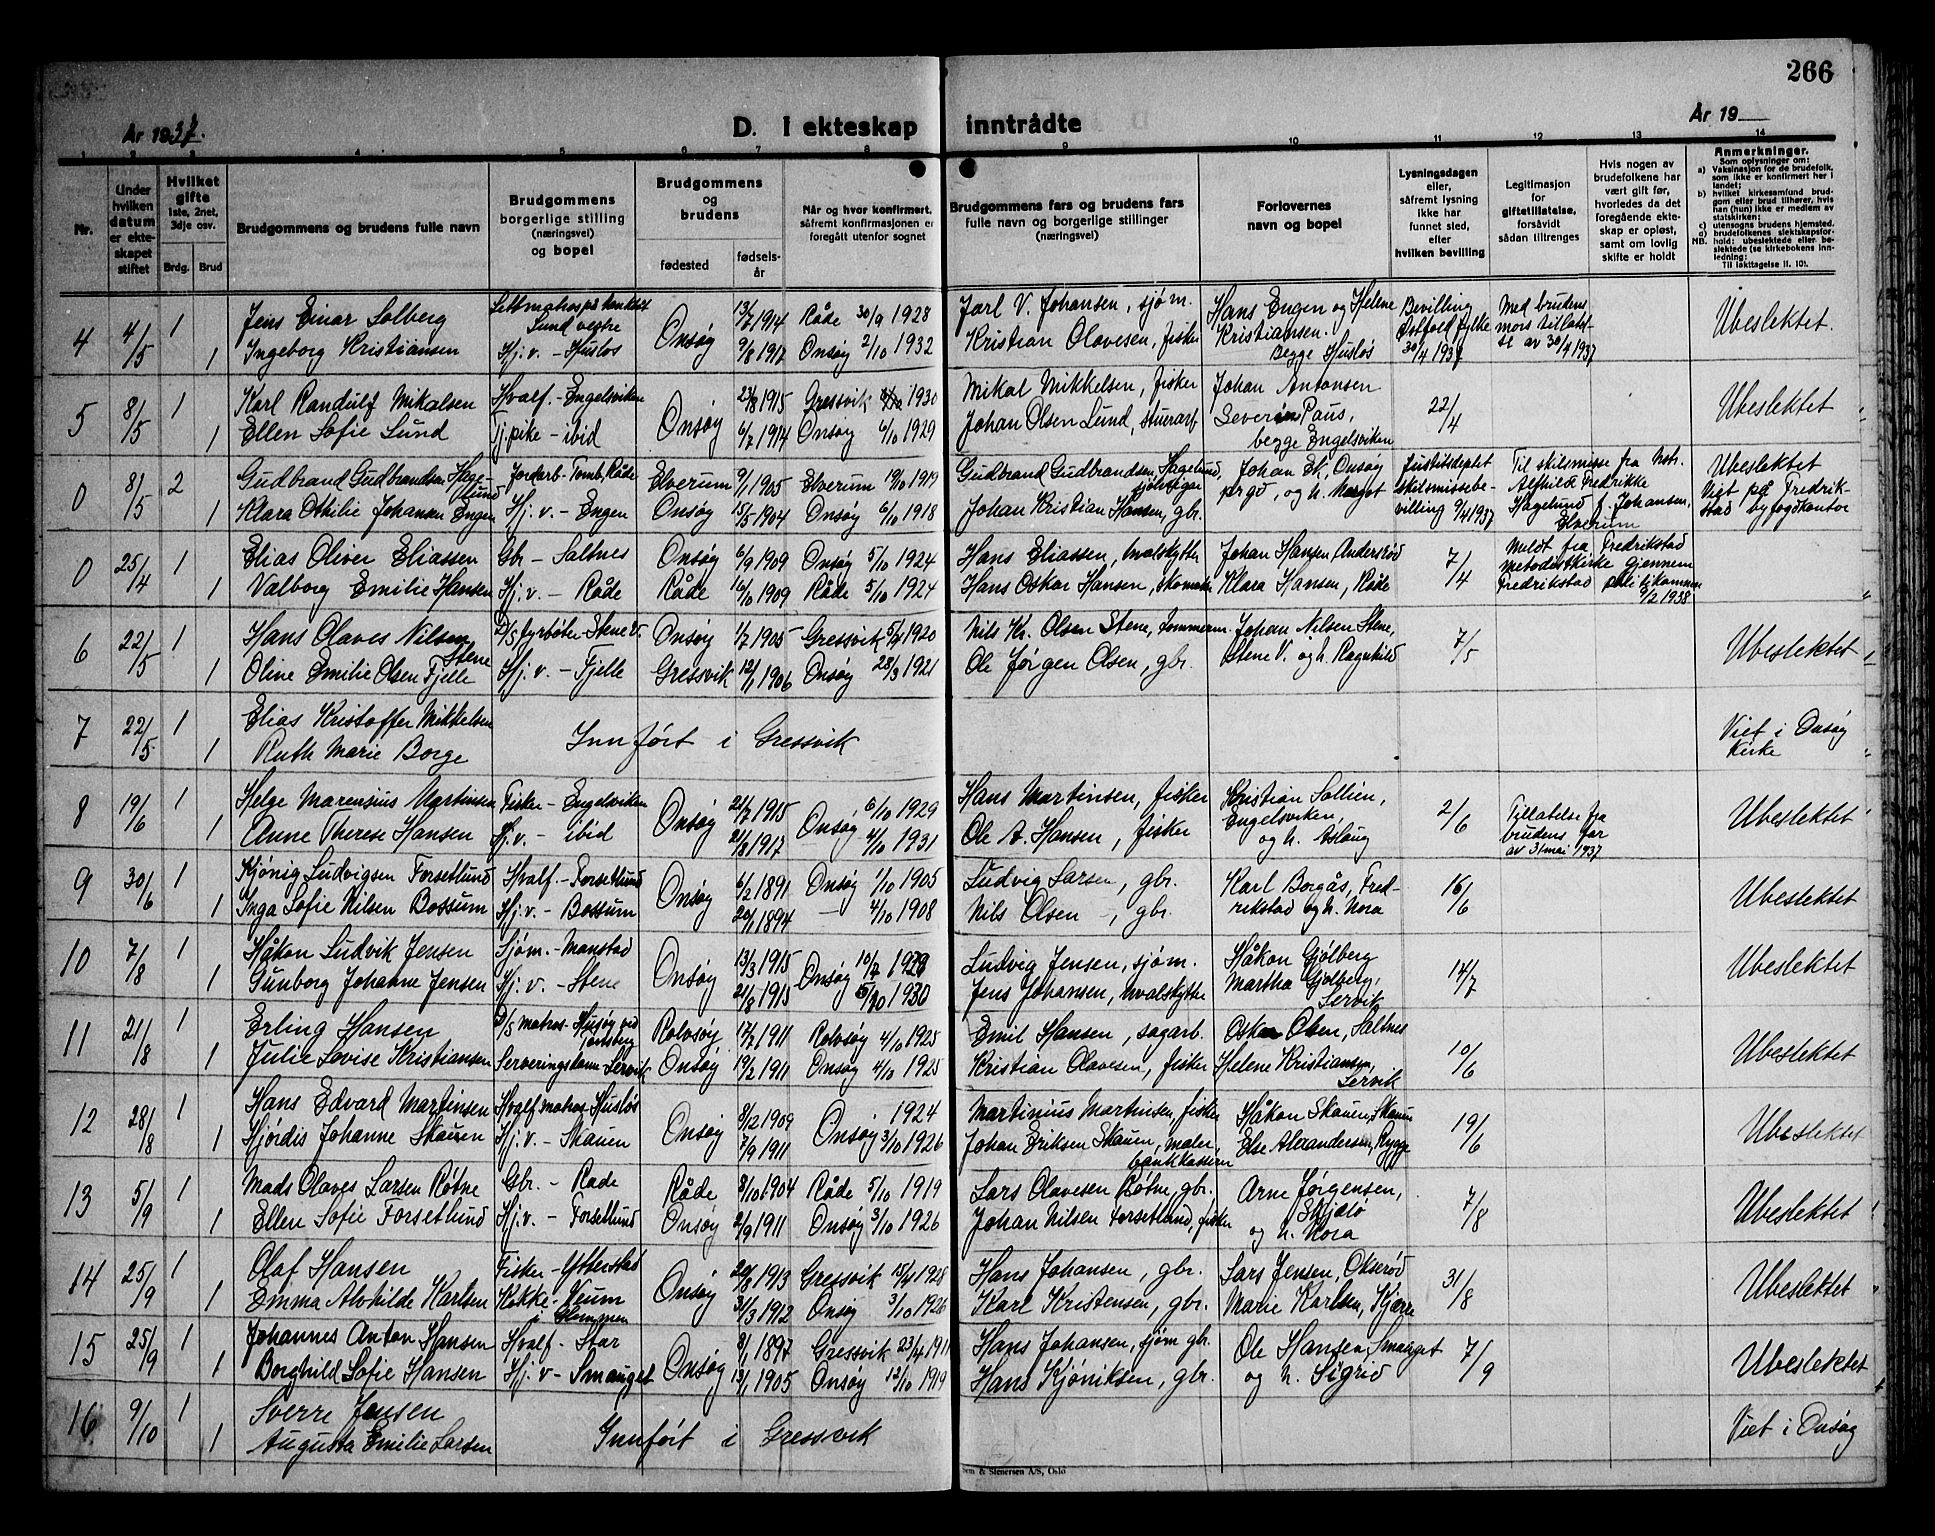 266
År 1937.
D. I ekteskap inntrådte
År 19
1 2 3 4 5 6 7 8 9 10 11 12 13 14
Nr.
Under hvilken datum er ekteskapet stiftet
Hvilket gifte 1ste, 2net, 3dje osv.
Brdg. Brud
Brudgommens og brudens fulle navn
Brudgommens borgerlige stilling (næringsvei) og bopel
Brudgommens og brudens
fødested fødselsår
Når og hvor konfirmert, såfremt konfirmasjonen er foregått utenfor sognet
Brudgommens fars og brudens fars fulle navn og borgerlige stillinger (næringsvei)
Forlovernes navn og bopel
Lysningsdagen eller, såfremt lysning ikke har funnet sted, efter hvilken bevilling
Legitimasjon for giftetillatelse, forsåvidt sådan tiltrenges
Hvis nogen av brudefolkene har vært gift før, hvorledes da det foregående ekteskap er opløst, samt om lovlig skifte er holdt
Anmerkninger.
Som oplysninger om:
a) Vaksinasjon for de brudefolk, som ikke er konfirmert her i landet;
b) hvilket kirkesamfund brudgom eller brud tilhører, hvis han (hun) ikke er medlem av statskirken;
c) utensogns brudens hjemsted.
d) brudefolkenes slektskapsforhold: ubeslektede eller beslektede (se kirkebokens innledning:
NB. Til iakttagelse II. 10).
4 4/5 1 Jens Einar Solberg Lettmatros på tankskib Sund vestre Onsøy 13/7 1914 Råde 30/9 1928 Jarl V. Johansen, sjøm. Hans Engen og Helene Kristiansen. Begge Husløs Bevilling Østfold fylke 30/4 1937 Med brudens mors tillatelse av 30/4 1937 Ubeslektet.
1 Ingeborg Kristiansen Hj.v. - Husløs 9/8 1917 Onsøy 2/10 1932 Kristian Olavesen, fisker
5 8/5 1 Karl Randulf Mikalsen Hvalf. - Engelsviken Onsøy 23/8 1915 Gressvik 1930 Mikal Mikkelsen, fisker Johan Antonsen 22/4 Ubeslektet
1 Ellen Sofie Lund Tj.pike - ibid 6/7 1914 Onsøy 6/10 1929 Johan Olsen Lund, stuerarb. Severin Paus, begge Engelsviken
0 8/5 2 Gudbrand Gudbrandsen Hagelund Jordarb. Tomb, Råde Elverum 9/1 1905 Elverum 19/10 1919 Gudbrand Gudbrandsen Hagelund, Johan Ek, Onsøy prgd, og h. Margot Justitsdeptet skilsmissebevilling 9/4 1937 Til skilsmisse fra Alfhild Fredrikke Hagelund f. Johansen, Elverum Ubeslektet Viet på Fredrikstad byfogdkontor
1 Klara Othilie Johansen Engen Hj.v. - Engen Onsøy 15/5 1904 Onsøy 6/10 1918 Johan Kristian Hansen, gbr.
0 25/4 1 Elias Oliver Eliassen Gbr - Saltnes Onsøy 6/9 1909 Onsøy 5/10 1924 Hans Eliassen, hvalskytte Johan Hansen Anderød 7/4 Meldt fra Fredrikstad Metodistkirke gjennem Fredrikstad politikammer 9/2 1938
1 Valborg Emilie Hansen Hj.v. - Råde Råde 16/10 1909 Råde 5/10 1924 Hans Oskar Hansen, skomaker Klara Hansen, Råde
6 22/5 1 Hans Olaves Nilsen Stene D/S fyrbøter Stene V. Onsøy 1/7 1905 Gressvik 5/4 1920 Nils Kr. Olsen Stene, tømmerm. Johan Nilsen Stene, 7/5 Ubeslektet
1 Oline Emilie Olsen Fjelle Hj.v. - Fjelle Gressvik 12/1 1906 Onsøy 28/3 1921 Ole Jørgen Olsen, gbr. Stene V. og h. Ragnhild
7 22/5 1 Elias Kristoffer Mikkelsen Innført i Gressvik Viet i Onsøy Kirke
1 Ruth Marie Borge
8 19/6 1 Helge Marensius Martinsen Fisker - Engelsviken Onsøy 21/7 1915 Onsøy 6/10 1929 Hans Martinsen, fisker Kristian Sollien, Engelsviken, og h. Aslaug 2/6 Tillatelse fra brudens far av 31 mai 1937 Ubeslektet
1 Anne Therese Hansen Hj.v. - ibid 21/8 1917 4/10 1931 Ole A. Hansen, fisker
9 30/6 1 Kjønig Ludvigsen Forsetlund Hvalf. - Forsetlund Onsøy 6/2 1891 Onsøy 1/10 1905 Ludvig Larsen, gbr. Karl Borgås, Fredrikstad og h. Nora 16/6 Ubeslektet
1 Inga Sofie Nilsen Bossum Hj.v. - Bossum 20/1 1894 — 4/10 1908 Nils Olsen -, gbr.
10 7/8 1 Håkon Ludvik Jensen Sjøm. - Manstad Onsøy 13/3 1915 Onsøy 1929 Ludvig Jensen, sjøm. Håkon Gjølberg 14/7 Ubeslektet
1 Gunborg Johanne Jensen Hj.v. - Stene 21/8 1915 5/10 1930 Jens Johansen, hvalskytte Martha Gjølberg, Lervik
11 21/8 1 Erling Hansen D/S matros - Husøy ved Tønsberg Rolvsøy 17/7 1911 Rolvsøy 4/10 1925 Emil Hansen, sagarb. Oskar Olsen, Saltnes 10/6 Ubeslektet
1 Julie Lovise Kristiansen Serveringsdame Lervik Onsøy 19/2 1911 Onsøy 4/10 1925 Kristian Olavesen, fisker Helene Kristiansen, Lervik
12 28/8 1 Hans Edvard Martinsen Hvalf. matros - Husløs Onsøy 8/2 1909 Onsøy 1924 Martinius Martinsen, fisker Håkon Skauen, Skauen 19/6 Ubeslektet
1 Hjørdis Johanne Skauen Hj.v. - Skauen 7/9 1911 3/10 1926 Johan Eriksen Skauen, maler bankkasserer Else Alexandersen, Rygge
13 5/9 1 Mads Olaves Larsen Røtne Gbr. - Råde Råde 8/10 1904 Råde 5/10 1919 Lars Olavesen Røtne, gbr. Arne Jørgensen, Skjælø og h. Nora 7/8 Ubeslektet
1 Ellen Sofie Forsetlund Hj.v. - Forsetlund Onsøy 2/9 1911 Onsøy 3/10 1926 Johan Nilsen Forsetlund, fisker
14 25/9 1 Olaf Hansen Fisker - Ytterstad Onsøy 20/8 1913 Gressvik 15/4 1928 Hans Johansen, gbr. Lars Jensen, Okserød 31/8 Ubeslektet
1 Emma Alvhilde Karlsen Kokke - Veum i Glemmen 31/3 1912 Onsøy 3/10 1926 Karl Kristensen, gbr. Marie Karlsen, Kjærre
15 25/9 1 Johannes Anton Hansen Hvalf - Slar Onsøy 8/1 1897 Gressvik 23/4 1911 Hans Johansen, sjøm gbr. Ole Hansen, Smauget 7/9 Ubeslektet
1 Borghild Sofie Hansen Hj.v - Smauget 13/1 1905 Onsøy 12/10 1919 Hans Kjøniksen, gbr. og h. Sigrid
16 9/10 1 Sverre Jensen Innført i Gressvik Viet i Onsøy
1 Augusta Emilie Larsen
Sem & Stenersen A/S, Oslo